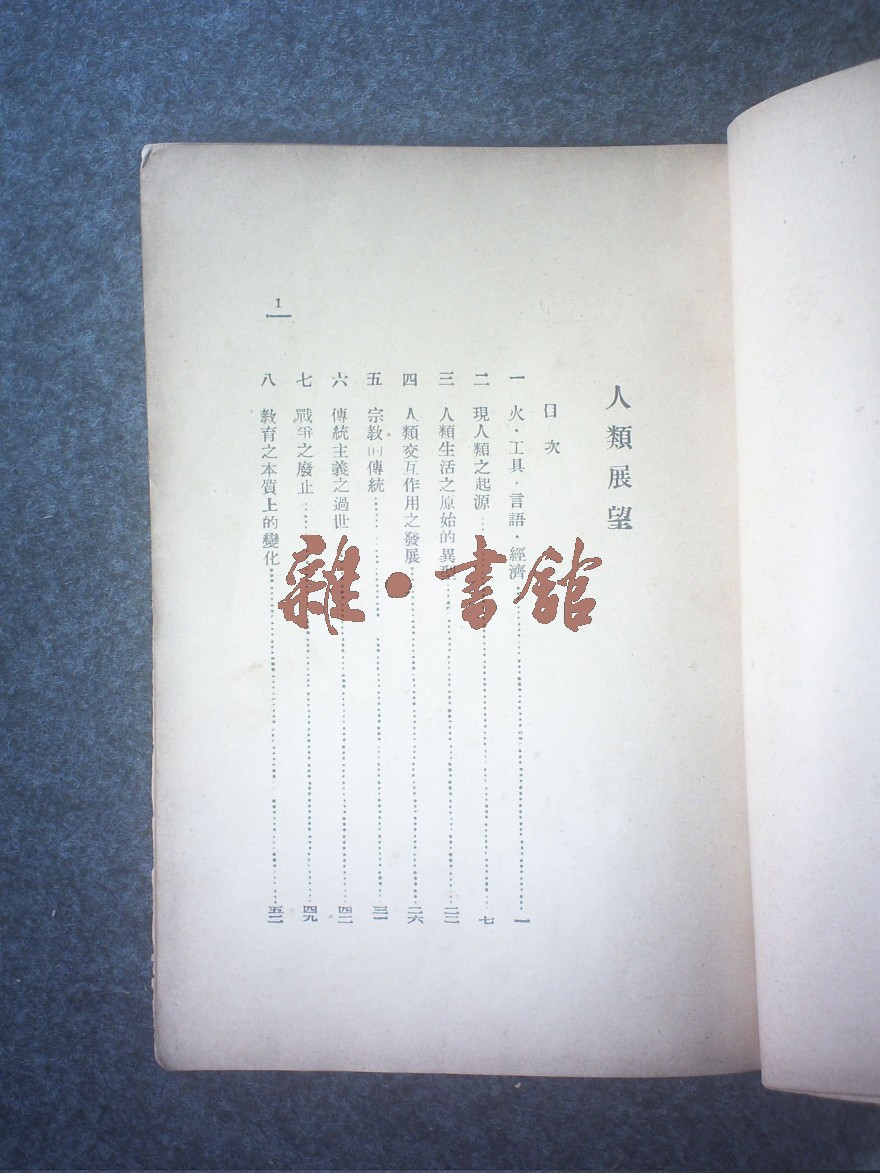 人類展望
目次
一 火·工具·言語·經濟……一
二 現人類之起源……七
三 人類生活之原始的異型……二三
四 人類交互作用之發展……二六
五 宗教的傳統……三一
六 傳統主義之過世……四二
七 戰爭之廢止……四九
八 教育之本質上的變化……五二
1
雜·書館